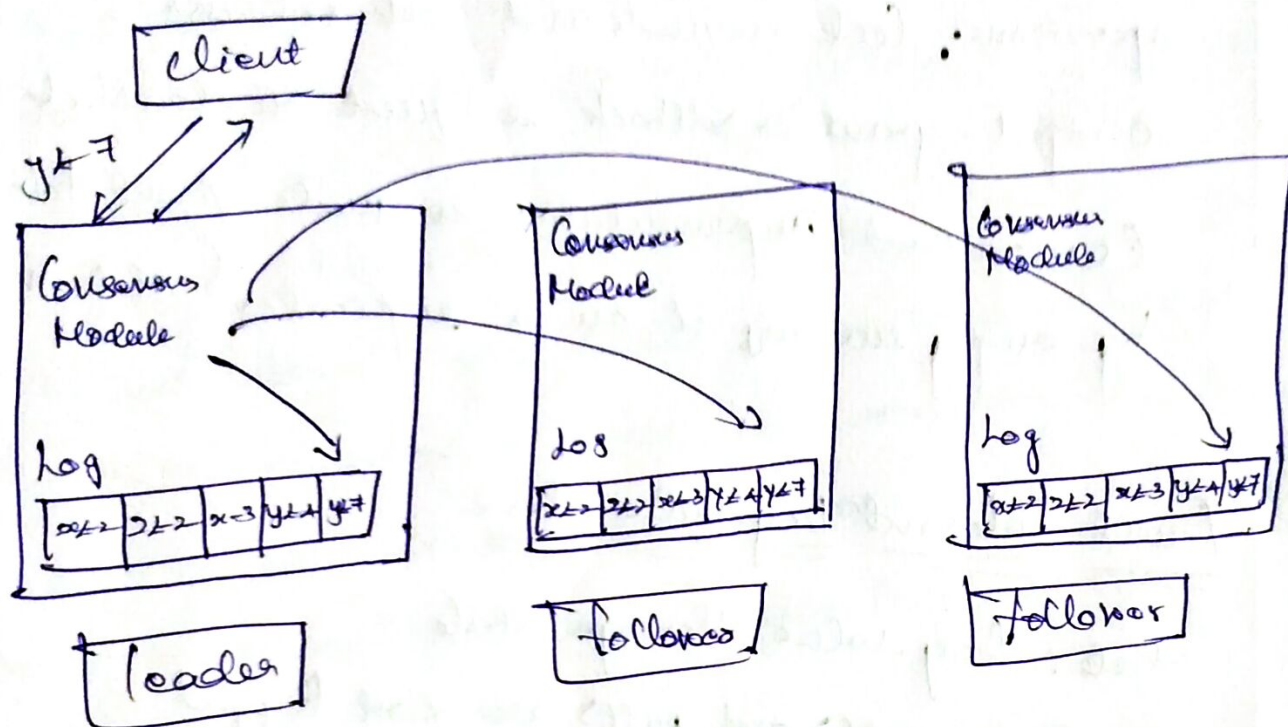 client
y ← 7
Consensus
Module
Log
x←2 z←2 x-3 y←4 y←7
leader
Consensus
Module
Log
x←2 z←2 x←3 y←4 y←7
follower
Consensus
Module
Log
x←2 z←2 x←3 y←4 y←7
follower